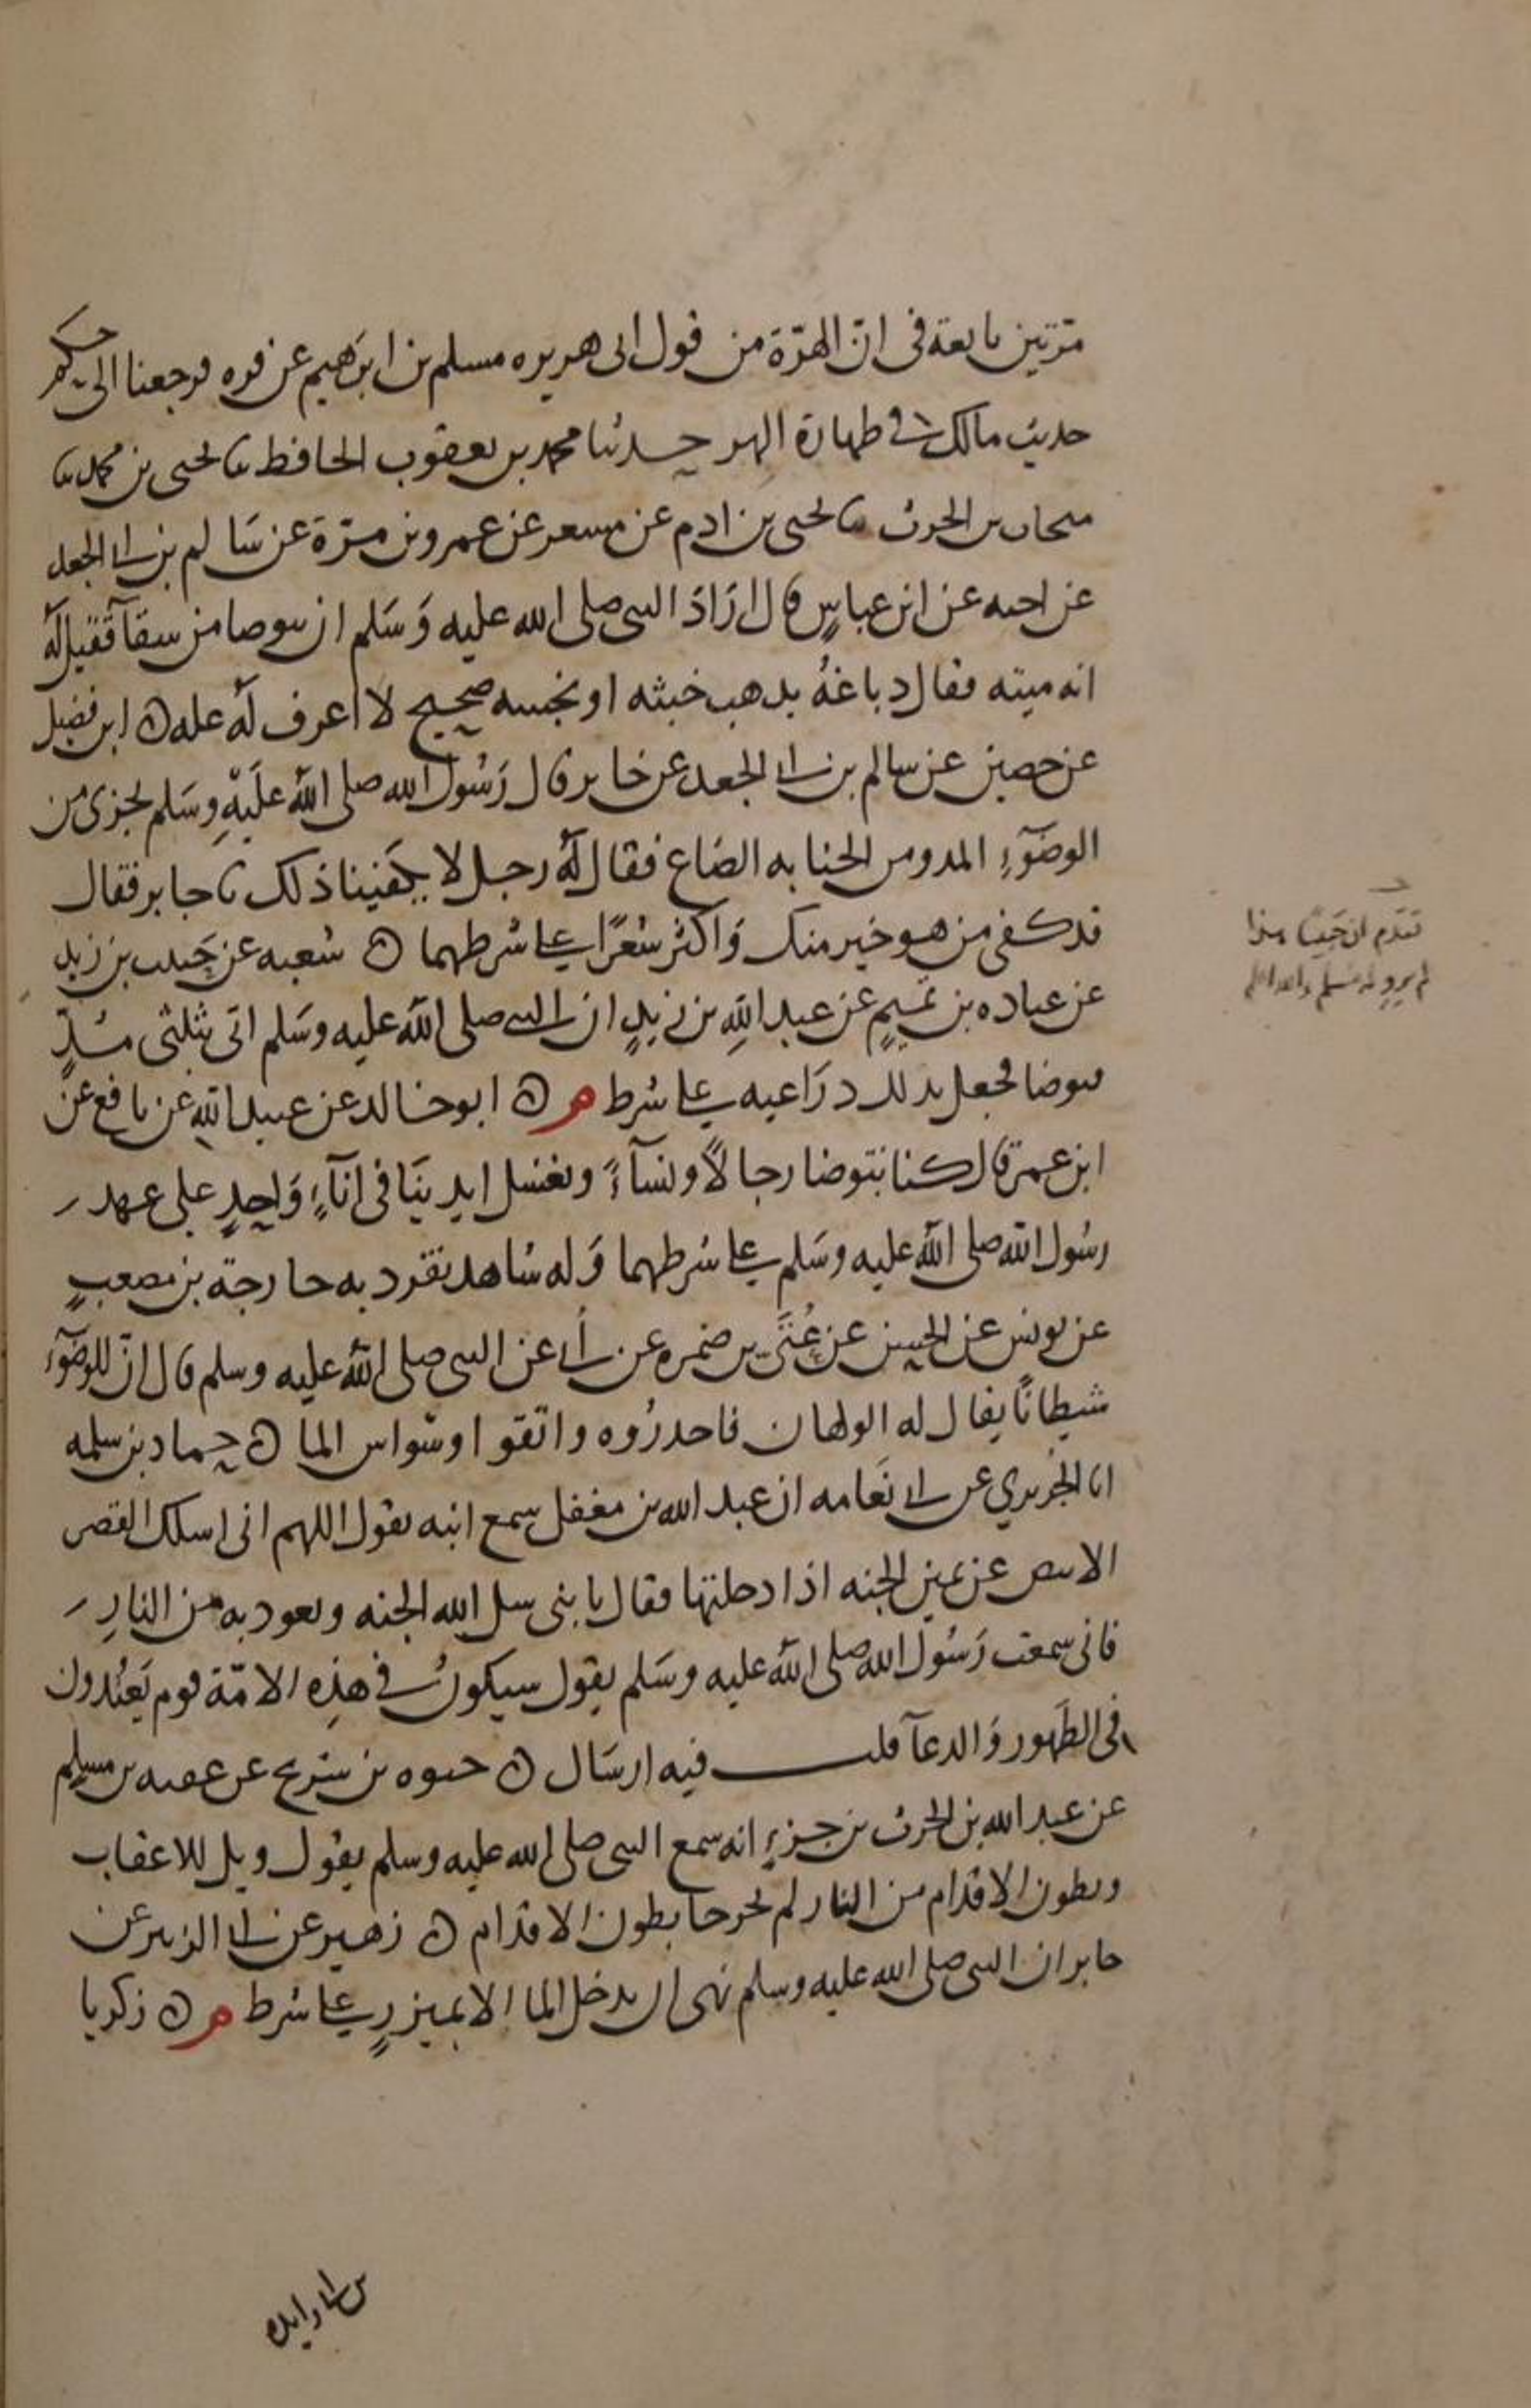 مرتين تابعه في ان الهرة من قول ابى هريره مسلم بن ابرهيم عن قره فرجعنا الى حكم
حديث مالك في طهارة الهر حدثنا محمد بن يعقوب الحافظ ثنا يحيى بن محمد ثنا
منجاب بن الحرث ثنا يحيى بن ادم عن مسعر عن عمرو بن مرة عن سالم بن ابي الجعد
عن اخيه عن ابن عباس قال اراد النبي صلى الله عليه وسلم ان يتوضا من سقآ فقيل له
انه ميته فقال دباغه يذهب خبثه او نجسه صحيح لا اعرف له عله ه ابن فضيل
عن حصين عن سالم بن ابي الجعد عن جابر قال رسول الله صلى الله عليه وسلم يجزى من
الوضوء المد ومن الجنابه الصاع فقال له رجل لا يكفينا ذلك يا جابر فقال
قد كفى من هو خير منك واكثر شعرا على شرطهما ه شعبه عن حبيب بن زيد
عن عباده بن تميم عن عبد الله بن زيد ان النبي صلى الله عليه وسلم اتى بثلثى مد
فتوضا فجعل يدلك ذراعيه على شرط م ه ابو خالد عن عبيد الله عن نافع عن
ابن عمر قال كنا نتوضا رجالا ونسآء ونغسل ايدينا في انآء واحد على عهد
رسول الله صلى الله عليه وسلم على شرطهما وله شاهد تفرد به خارجة بن مصعب
عن يونس عن الحسن عن عتي بن ضمره عن ابي عن النبي صلى الله عليه وسلم قال ان للوضوء
شيطانا يقال له الولهان فاحذروه واتقوا وسواس الما ه حماد بن سلمه
انا الجريري عن ابي نعامه ان عبد الله بن مغفل سمع ابنه يقول اللهم انى اسلك القصر
الابيض عن يمين الجنه اذا دخلتها فقال يا بنى سل الله الجنه وتعوذ به من النار
فانى سمعت رسول الله صلى الله عليه وسلم يقول سيكون في هذه الامة قوم يعتدون
في الطهور والدعآ قلت فيه ارسال ه حيوه بن شريح عن عقبه بن مسلم
عن عبد الله بن الحرث بن جزء انه سمع النبي صلى الله عليه وسلم يقول ويل للاعقاب
وبطون الاقدام من النار لم يخرجا بطون الاقدام ه زهير عن ابي الزبير عن
جابر ان النبي صلى الله عليه وسلم نهى ان يدخل الما الا بميزر على شرط م ه زكريا
تقدم ان حبيبا هذا
لم يرو له مسلم والله اعلم
بن ابي زايده